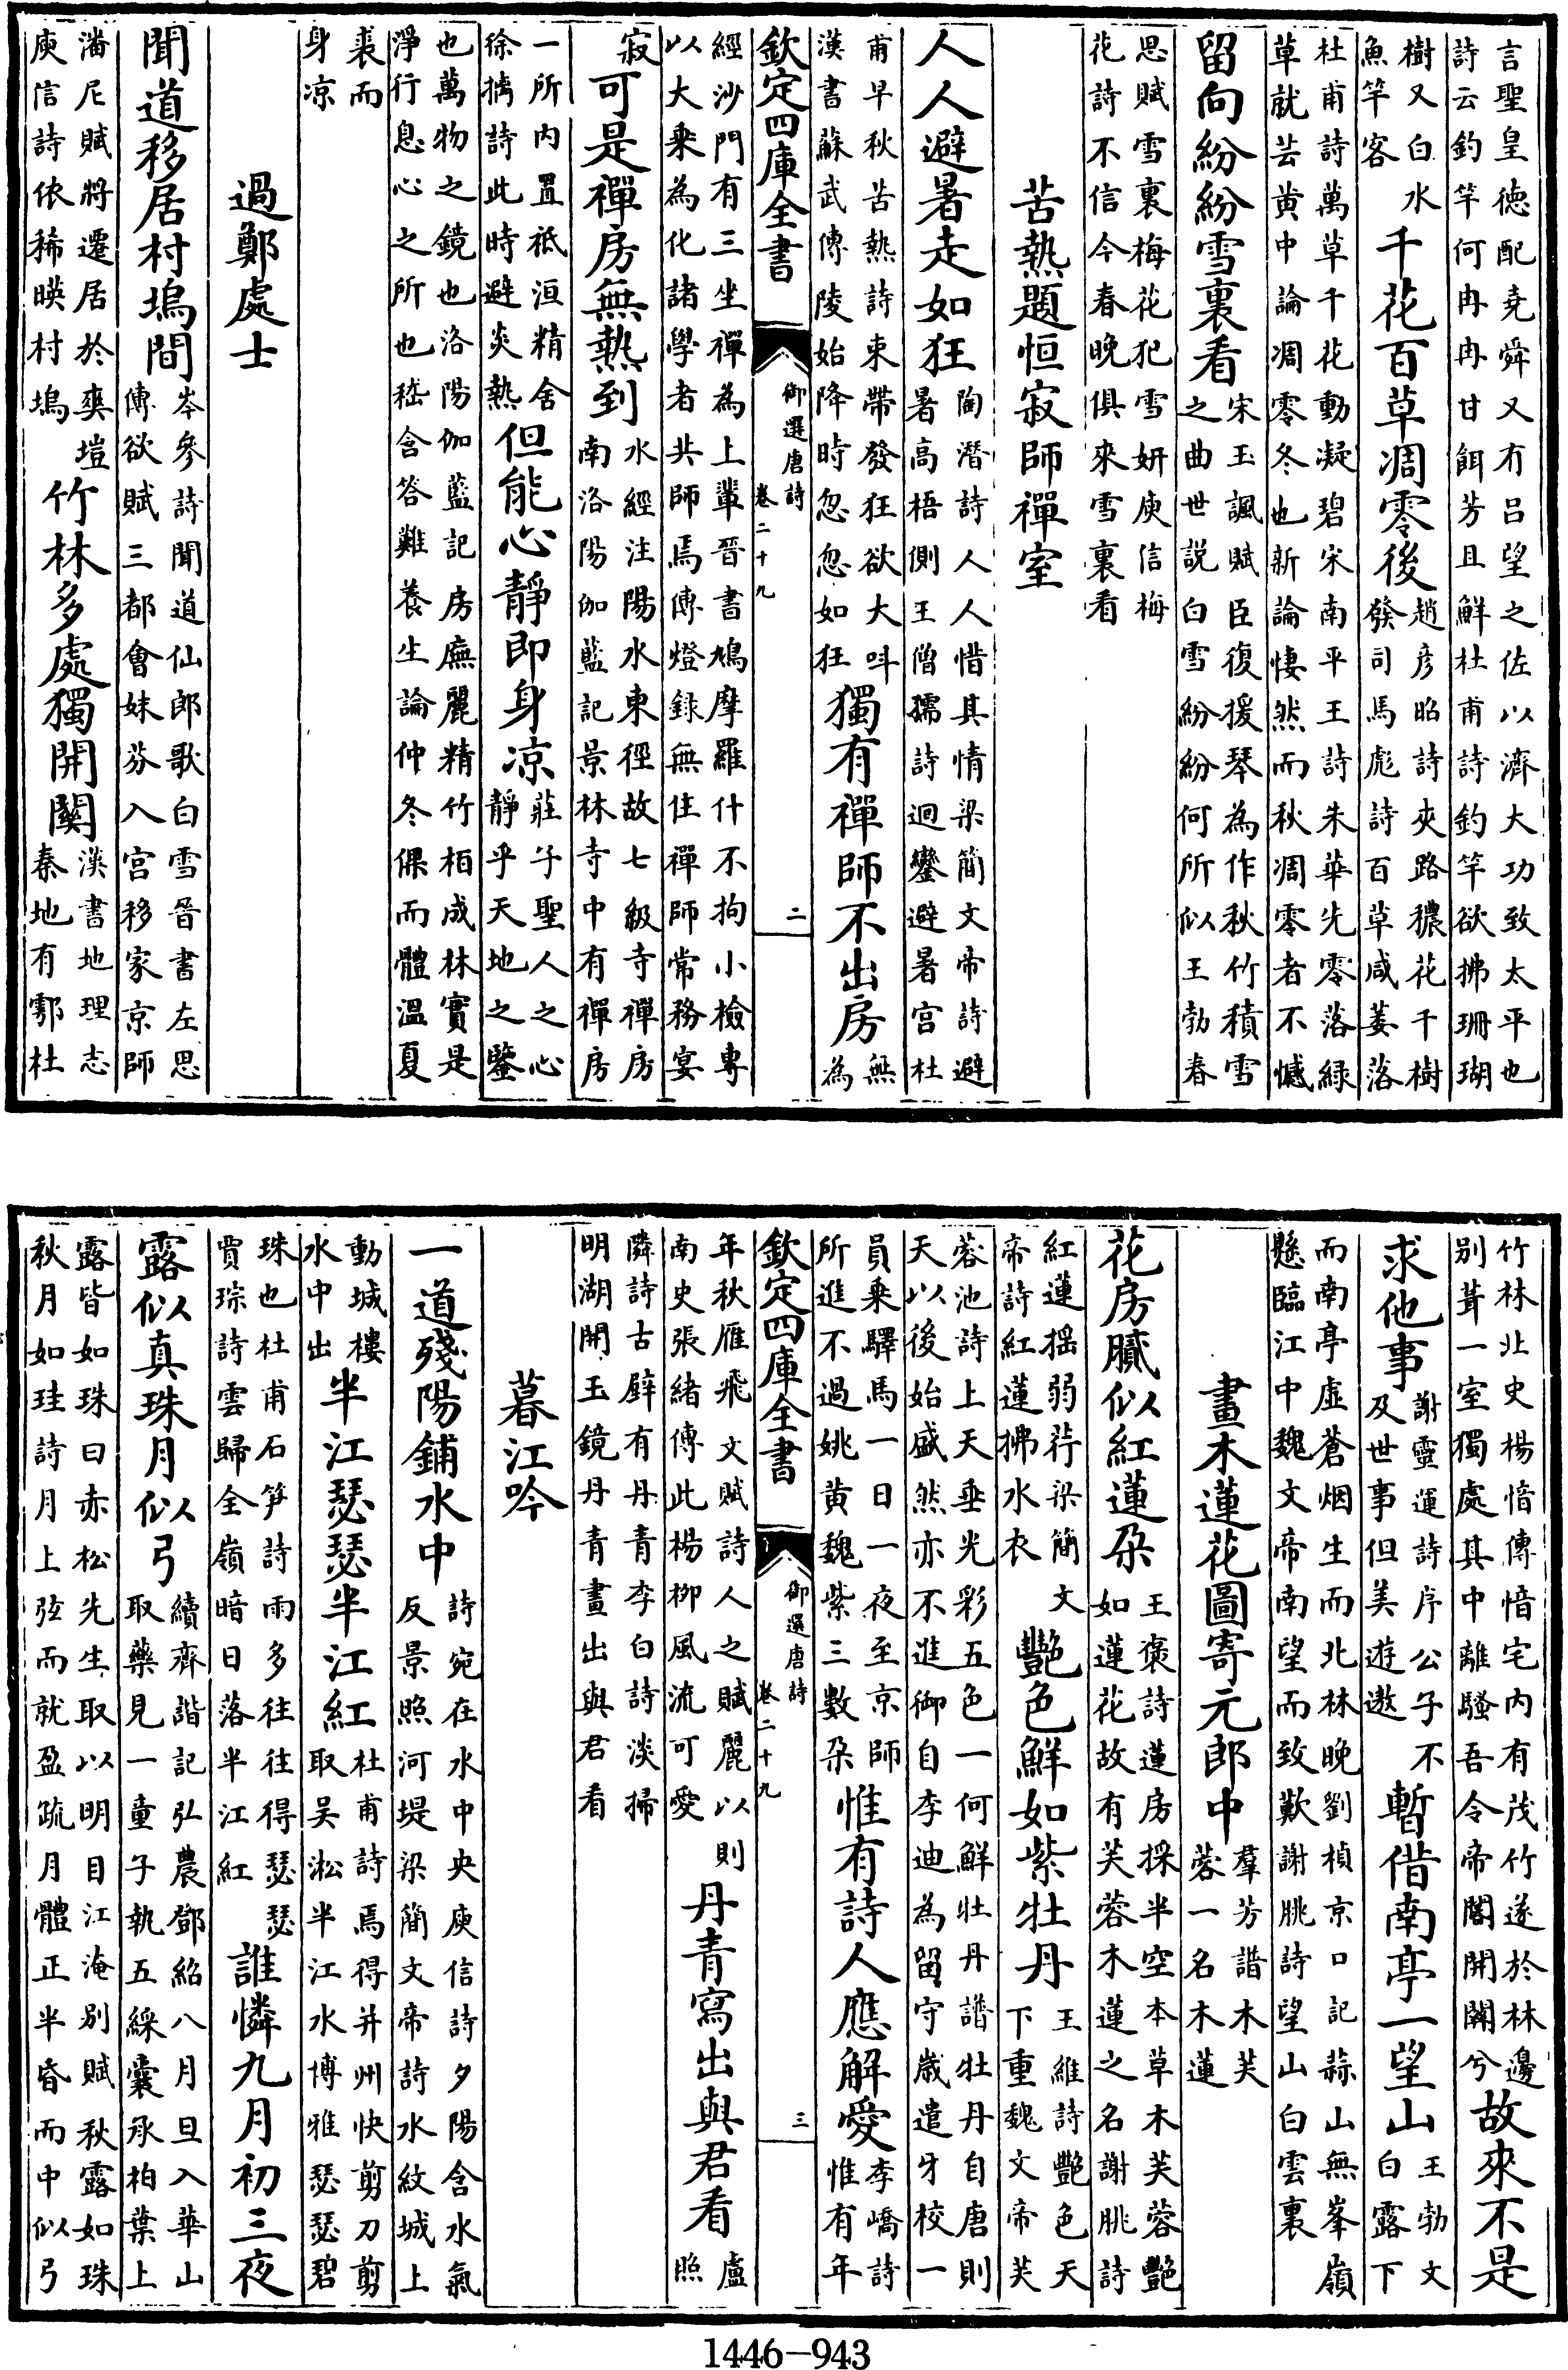 言聖皇德配堯舜又有呂望之佐以濟大功致太平也
詩云釣竿何冉冉甘餌芳且鮮杜甫詩釣竿欲拂珊瑚
樹又白水
魚竿客
千花百草凋零後
趙彦昭詩夾路穠花千樹
發司馬彪詩百草咸萎落
杜甫詩萬草千花動凝碧宋南平王詩朱華先零落緑
草就芸黄中論凋零冬也新論悽然而秋凋零者不憾
留向紛紛雪裏看
宋玉諷賦臣復援琴為作秋竹積雪
之曲世説白雪紛紛何所似王勃春
思賦雪裏梅花犯雪妍庾信梅
花詩不信今春晚俱來雪裏看
苦熱題恒寂師禪室
人人避暑走如狂
陶潛詩人人惜其情梁簡文帝詩避
暑高梧側王僧孺詩迴鑾避暑宫杜
甫早秋苦熱詩束帶發狂欲大呌
漢書蘇武傳陵始降時忽忽如狂
獨有禪師不出房
無
為
欽定四庫全書
御選唐詩
卷二十九
二
經沙門有三坐禪為上軰晉書鳩摩羅什不拘小檢專
以大乘為化諸學者共師焉傳燈録無住禪師常務宴
寂
可是禪房無熱到
水經注陽水東徑故七級寺禪房
南洛陽伽藍記景林寺中有禪房
一所内置祇洹精舍
徐擒詩此時避炎熱
但能心靜即身凉
莊子聖人之心
靜乎天地之鑒
也萬物之鏡也洛陽伽藍記房廡麗精竹栢成林實是
淨行息心之所也嵇含答難養生論仲冬倮而體温夏
裘而
身凉
過鄭處士
聞道移居村塢間
岑參詩聞道仙郎歌白雪晉書左思
傳欲賦三都會妹芬入宫移家京師
潘尼賦將遷居於爽塏
庾信詩依稀暎村塢
竹林多處獨開關
漢書地理志
秦地有鄠杜
竹林北史楊愔傳愔宅内有茂竹遂於林邊
别葺一室獨處其中離騷吾令帝閽開關兮
故來不是
求他事
謝靈運詩序公子不
及世事但美遊遨
暫借南亭一望山
王勃文
白露下
而南亭虛蒼烟生而北林晚劉楨京口記蒜山無峯嶺
懸臨江中魏文帝南望而致歎謝朓詩望山白雲裏
畫木蓮花圖寄元郎中
羣芳譜木芙
蓉一名木蓮
花房膩似紅蓮朶
王褒詩蓮房採半空本草木芙蓉豔
如蓮花故有芙蓉木蓮之名謝朓詩
紅蓮摇弱荇梁簡文
帝詩紅蓮拂水衣
豔色鮮如紫牡丹
王維詩豔色天
下重魏文帝芙
蓉池詩上天垂光彩五色一何鮮牡丹譜牡丹自唐則
天以後始盛然亦不進御自李迪為留守歲遣牙校一
員乘驛馬一日一夜至京師
所進不過姚黄魏紫三數朶
惟有詩人應解愛
李嶠詩
惟有年
欽定四庫全書
御選唐詩
卷二十九
三
年秋雁飛文賦詩人之賦麗以則
南史張緒傳此楊柳風流可愛
丹青寫出與君看
盧
照
隣詩古壁有丹青李白詩淡掃
明湖開玉鏡丹青畫出與君看
暮江吟
一道殘陽鋪水中
詩宛在水中央庾信詩夕陽含水氣
反景照河堤梁簡文帝詩水紋城上
動城樓
水中出
半江瑟瑟半江紅
杜甫詩焉得并州快剪刀剪
取吴淞半江水博雅瑟瑟碧
珠也杜甫石笋詩雨多往往得瑟瑟
賈琮詩雲歸全嶺暗日落半江紅
誰憐九月初三夜
露似真珠月似弓
續齊諧記弘農鄧紹八月旦入華山
取藥見一童子執五綵囊承柏葉上
露皆如珠曰赤松先生取以明目江淹别賦秋露如珠
秋月如珪詩月上弦而就盈疏月體正半昏而中似弓
1446-943